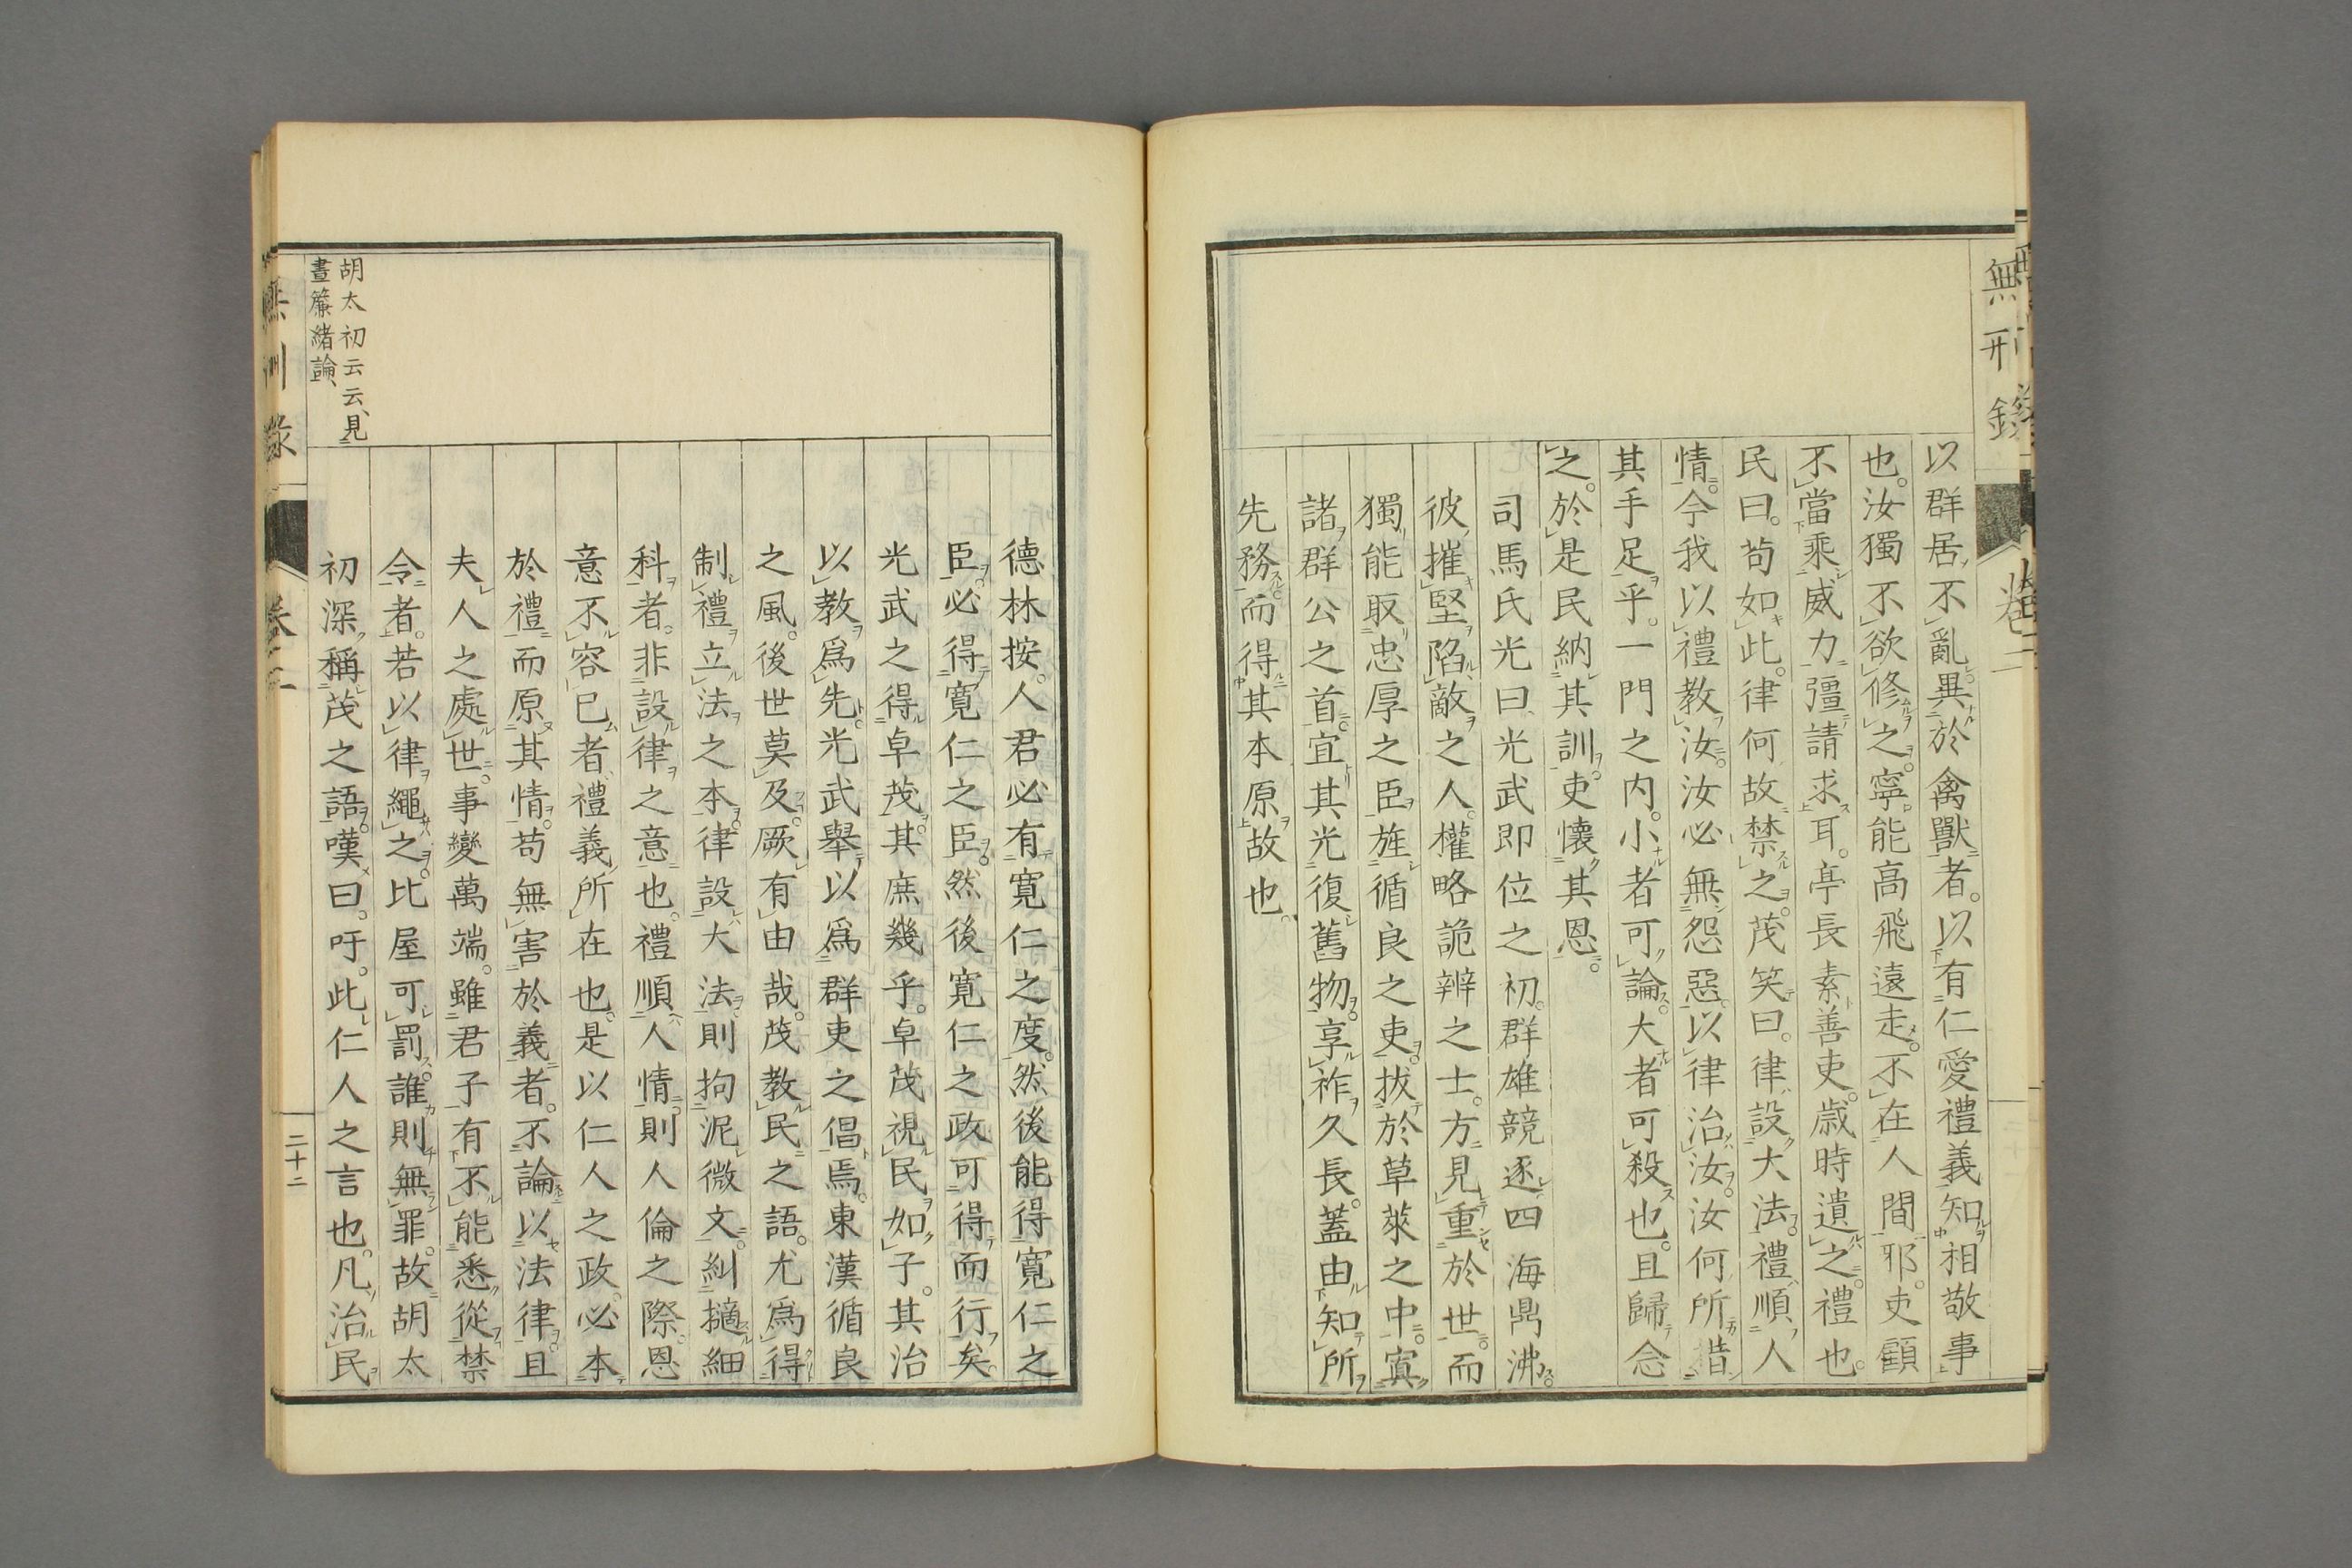 無刑錄
卷二
以群居不亂異於禽獸者以有仁愛禮義知相敬事
也汝獨不欲修之寧能高飛遠走不在人間邪吏顧
不當乘威力彊請求耳亭長素善吏歲時遺之禮也
民曰苟如此律何故禁之茂笑曰律設大法禮順人
情今我以禮教汝汝必無怨惡以律治汝汝何所措
其手足乎一門之内小者可論大者可殺也且歸念
之於是民納其訓吏懷其恩
司馬氏光曰光武即位之初群雄競逐四海鼎沸
彼摧堅陷敵之人權略詭辨之士方見重於世而
獨能取忠厚之臣旌循良之吏拔於草萊之中寘
諸群公之首宜其光復舊物享祚久長蓋由知所
先務而得其本原故也
德林按人君必有寬仁之度然後能得寬仁之
臣必得寬仁之臣然後寬仁之政可得而行矣
光武之得卓茂其庶幾乎卓茂視民如子其治
以教爲先光武舉以爲群吏之倡焉東漢循良
之風後世莫及厥有由哉茂教民之語尤爲得
制禮立法之本律設大法則拘泥微文糾擿細
科者非設律之意也禮順人情則人倫之際恩
意不容已者禮義所在也是以仁人之政必本
於禮而原其情苟無害於義者不論以法律且
夫人之處世事變萬端雖君子有不能悉從禁
令者若以律繩之比屋可罰誰則無罪故胡太
初深稱茂之語嘆曰吁此仁人之言也凡治民
胡太初云云見
晝簾緒論
卷二
二十二